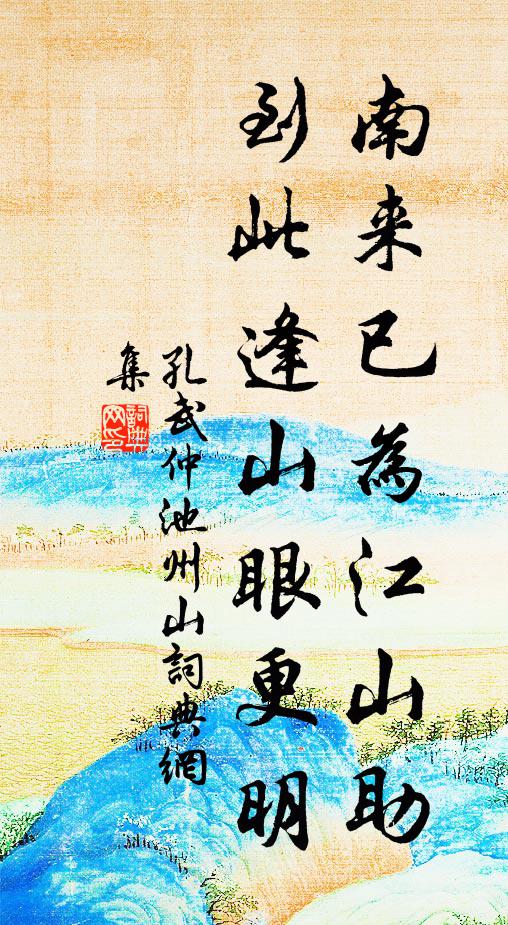 南来已為江山助
到此逢山眼更明
孔武仲池州山詞典網
集
詞典
网印